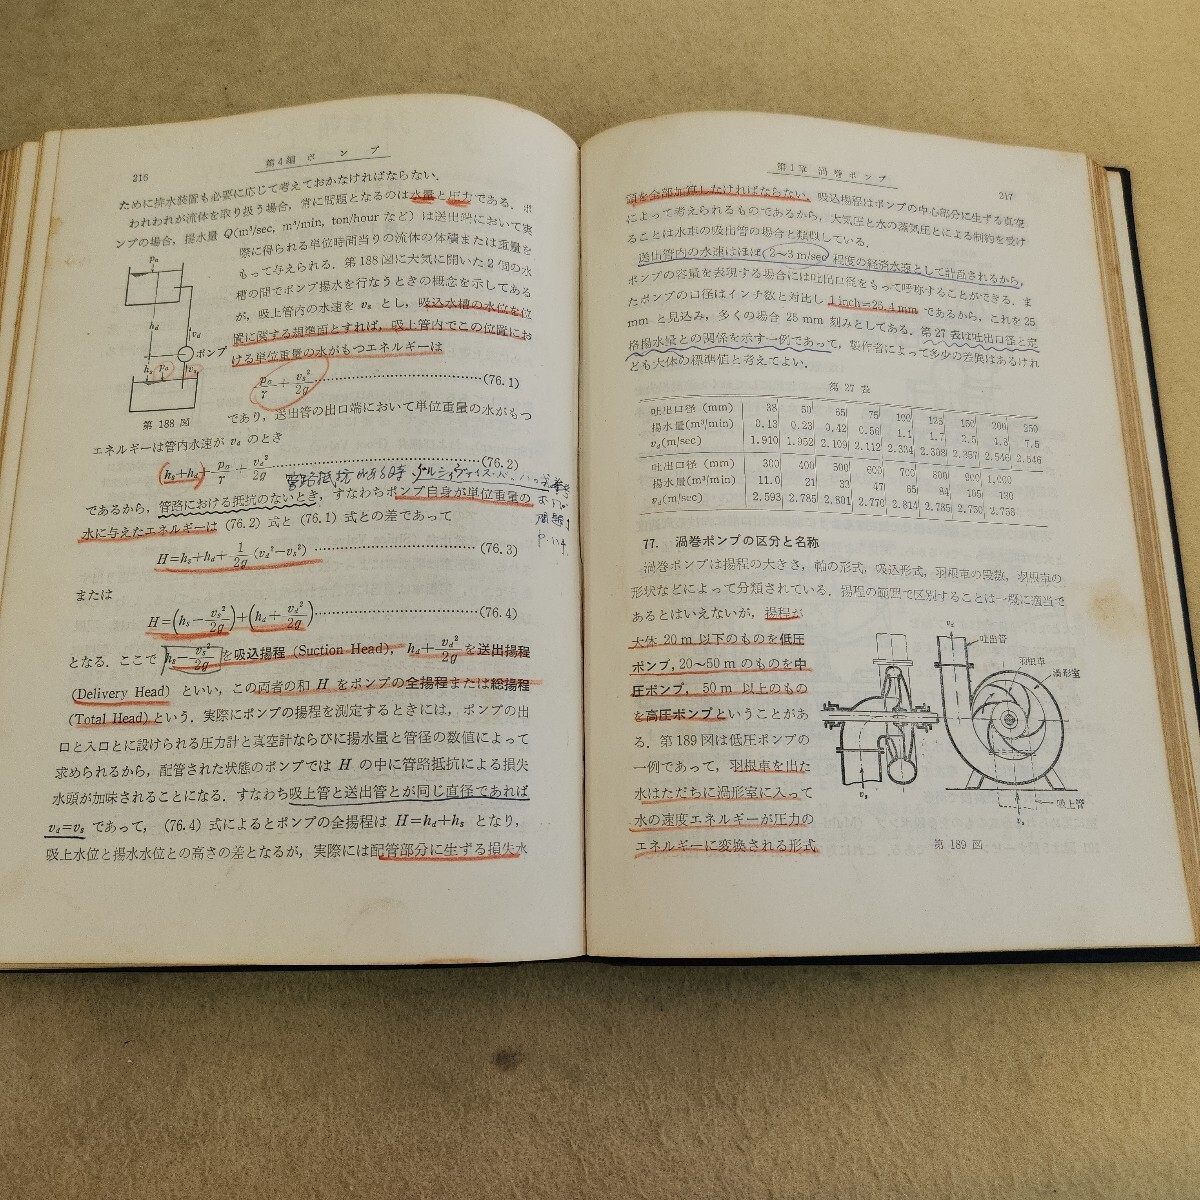 216
第4編 ポンプ
ために排水装置も必要に応じて考えておかなければならない．
われわれが流体を取り扱う場合，常に問題となるのは水量と圧力である．ポ
ンプの場合，揚水量 Q(m³/sec, m³/min, ton/hour など) は送出端において実
際に得られる単位時間当りの流体の体積または重量を
もって与えられる．第188図に大気に開いた2個の水
槽の間でポンプ揚水を行なうときの概念を示してある
が，吸上管内の水速を vs とし，吸込水槽の水位を位
置に関する規準面とすれば，吸上管内でこの位置にお
ける単位重量の水がもつエネルギーは
pa/γ + vs²/2g ……(76.1)
pa
hd
vd
ポンプ
hs
pa
vs
第 188 図
であり，送出管の出口端において単位重量の水がもつ
エネルギーは管内水速が vd のとき
(hs+hd)+pa/γ+vd²/2g ……(76.2)
管路抵抗がある時
であるから，管路における抵抗のないとき，すなわちポンプ自身が単位重量の
水に与えたエネルギーは (76.2) 式と (76.1) 式との差であって
問題1
P.114
H=hs+hd+1/2g (vd²−vs²) ……(76.3)
または
H=(hs−vs²/2g)+(hd+vd²/2g) ……(76.4)
となる．ここで hs−vs²/2g を吸込揚程 (Suction Head)，hd+vd²/2g を送出揚程
(Delivery Head) といい，この両者の和 H をポンプの全揚程または総揚程
(Total Head) という．実際にポンプの揚程を測定するときには，ポンプの出
口と入口とに設けられる圧力計と真空計ならびに揚水量と管径の数値によって
求められるから，配管された状態のポンプでは H の中に管路抵抗による損失
水頭が加味されることになる．すなわち吸上管と送出管とが同じ直径であれば
vd=vs であって，(76.4) 式によるとポンプの全揚程は H=hd+hs となり，
吸上水位と揚水水位との高さの差となるが，実際には配管部分に生ずる損失水
第1章 渦巻ポンプ
217
頭を全部加算しなければならない．吸込揚程はポンプの中心部分に生ずる真空
によって考えられるものであるから，大気圧と水の蒸気圧とによる制約を受け
ることは水車の吸出管の場合と類似している．
送出管内の水速はほぼ 2〜3 m/sec 程度の経済水速として計画されるから，
ポンプの容量を表現する場合には吐出口径をもって呼称することができる．ま
たポンプの口径はインチ数と対比し 1 inch=25.4 mm であるから，これを 25
mm と見込み，多くの場合 25 mm 刻みとしてある．第27表は吐出口径と定
格揚水量との関係を示す一例であって，製作者によって多少の差異はあるけれ
ども大体の標準値と考えてよい．
第 27 表
吐出口径 (mm) 38 50 65 75 100 125 150 200 250
揚水量(m³/min) 0.13 0.23 0.42 0.56 1.1 1.7 2.5 4.8 7.5
vd(m/sec) 1.910 1.952 2.109 2.112 2.334 2.308 2.357 2.546 2.546
吐出口径 (mm) 300 400 500 600 700 800 900 1,000
揚水量(m³/min) 11.0 21 33 47 65 84 105 130
vd(m/sec) 2.593 2.785 2.801 2.770 2.814 2.785 2.750 2.755
77. 渦巻ポンプの区分と名称
渦巻ポンプは揚程の大きさ，軸の形式，吸込形式，羽根車の段数，羽根車の
形状などによって分類されている．揚程の範囲で区別することは一概に適当で
あるとはいえないが，揚程が
大体 20 m 以下のものを低圧
ポンプ，20〜50 m のものを中
圧ポンプ，50 m 以上のもの
を高圧ポンプということがあ
る．第189図は低圧ポンプの
一例であって，羽根車を出た
水はただちに渦形室に入って
水の速度エネルギーが圧力の
エネルギーに変換される形式
vd
吐出管
羽根車
渦形室
吸上管
vs
vs
第 189 図